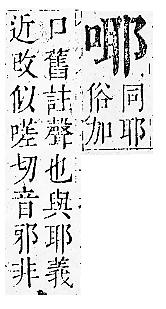 㖿
同耶
俗加
口舊註聲也與耶義
近改似嗟切音邪非